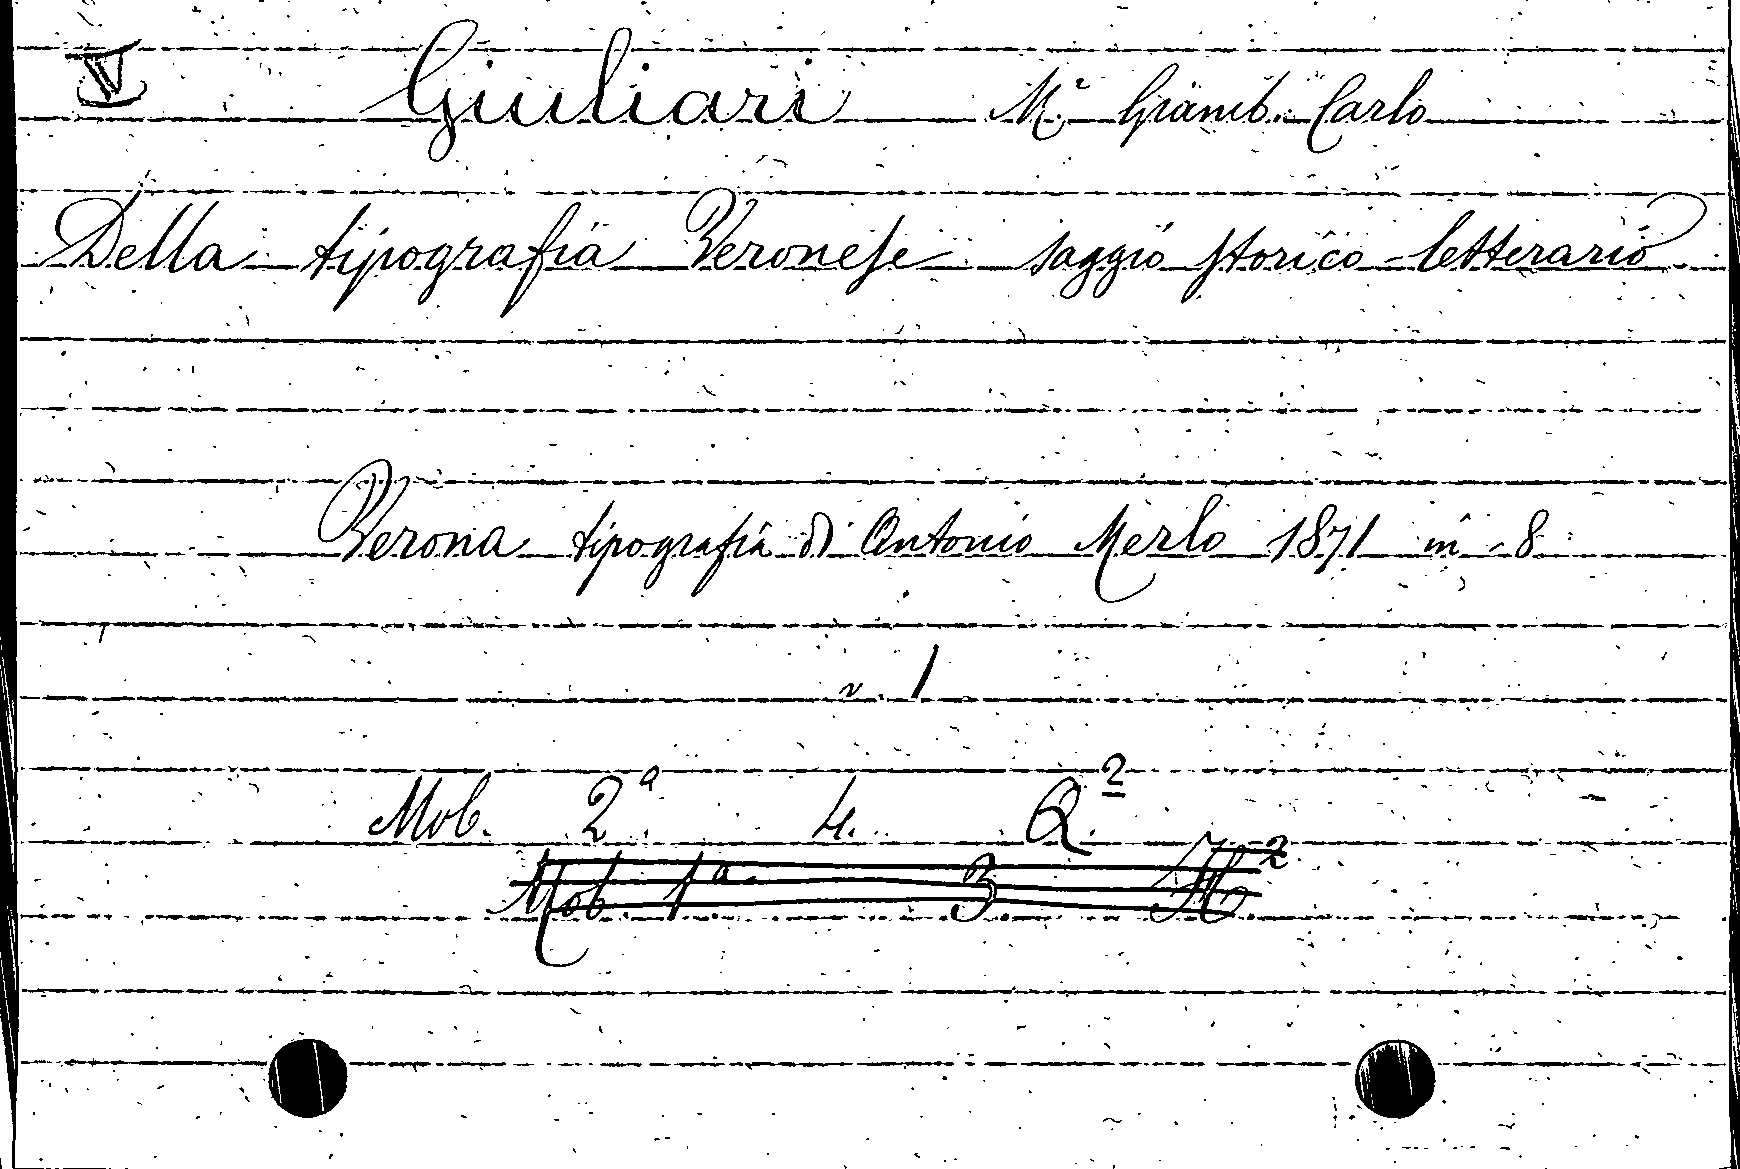 V Giuliari M.r Giamb. Carlo
Della tipografia Veronese saggio storico-letterario
Verona tipografia di Antonio Merlo 1871 in-8
v. 1
Mob. 2a. 4. Q.2
Mob. 1a. 3.